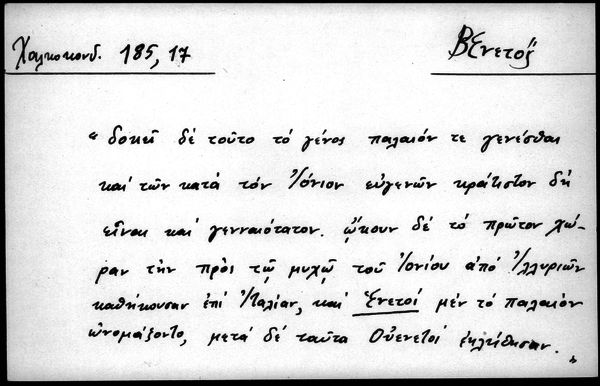 Χαλκοκονδ. 185, 17
Βενετοί
"δοκεῖ δέ τοῦτο τό γένος παλαιόν τε γενέσθαι
καί τῶν κατά τόν Ἰόνιον εὐγενῶν κράτιστον δή
εἶναι καί γενναιότατον. ᾤκουν δέ τό πρῶτον χώ-
ραν τήν πρός τῷ μυχῷ τοῦ Ἰονίου ἀπό Ἰλλυριῶν
καθήκουσαν ἐπί Ἰταλίαν, καί Ἑνετοί μέν τό παλαιόν
ὠνομάζοντο, μετά δέ ταῦτα Οὐενετοί ἐκλήθησαν.